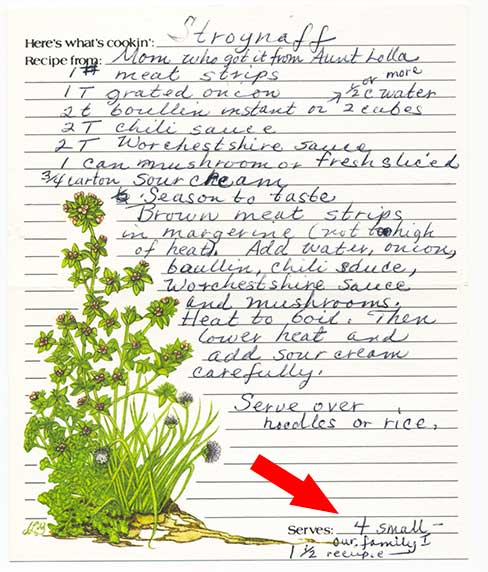 Here's what's cookin': Stroynaff
Recipe from: Mom who got it from Aunt Lolla
1# meat strips or more
1 T grated onion → ½ c water
2 t boullin instant or 2 cubes
2 T chili sauce
2 T Worchestshire sauce
1 can mushroom or fresh sliced
3/4 carton sour cream
Season to taste
Brown meat strips
in margerine (not too high
of heat). Add water, onion,
baullin, chili sauce,
Worchestshire sauce
and mushrooms.
Heat to boil. Then
lower heat and
add sour cream
carefully.
Serve over
noodles or rice.
Serves: 4 small –
our family I
1 ½ recipie